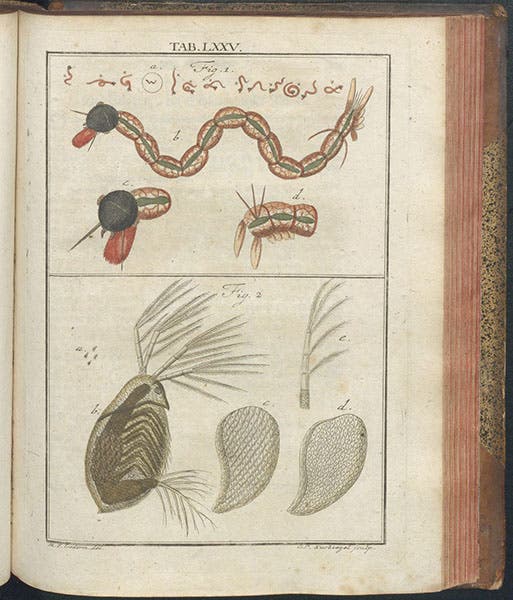 TAB. LXXV.
Fig. 1.
a.
b.
c.
d.
Fig. 2
a.
e.
b.
c.
d.
del.
sculp.